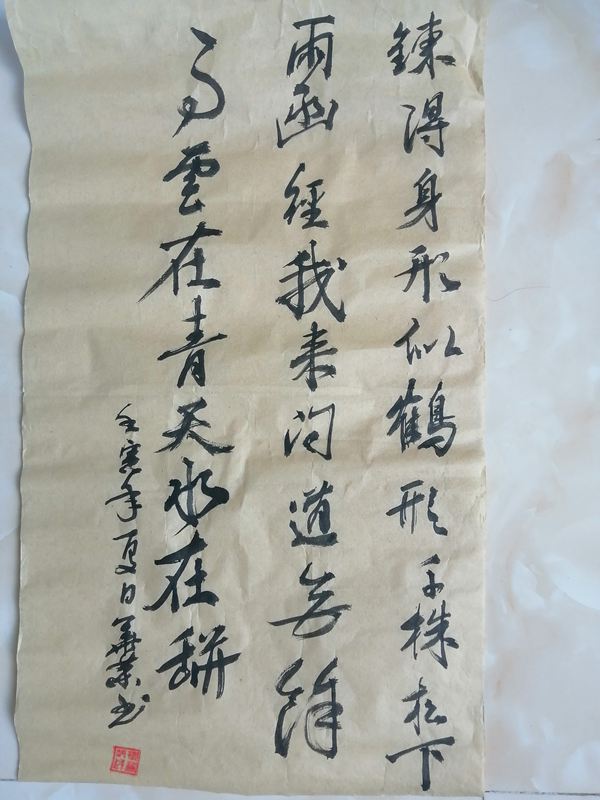 鍊得身形似鶴形千株松下
兩函經我来问道无餘
雲在青天水在缾
壬寅年夏日華荣书